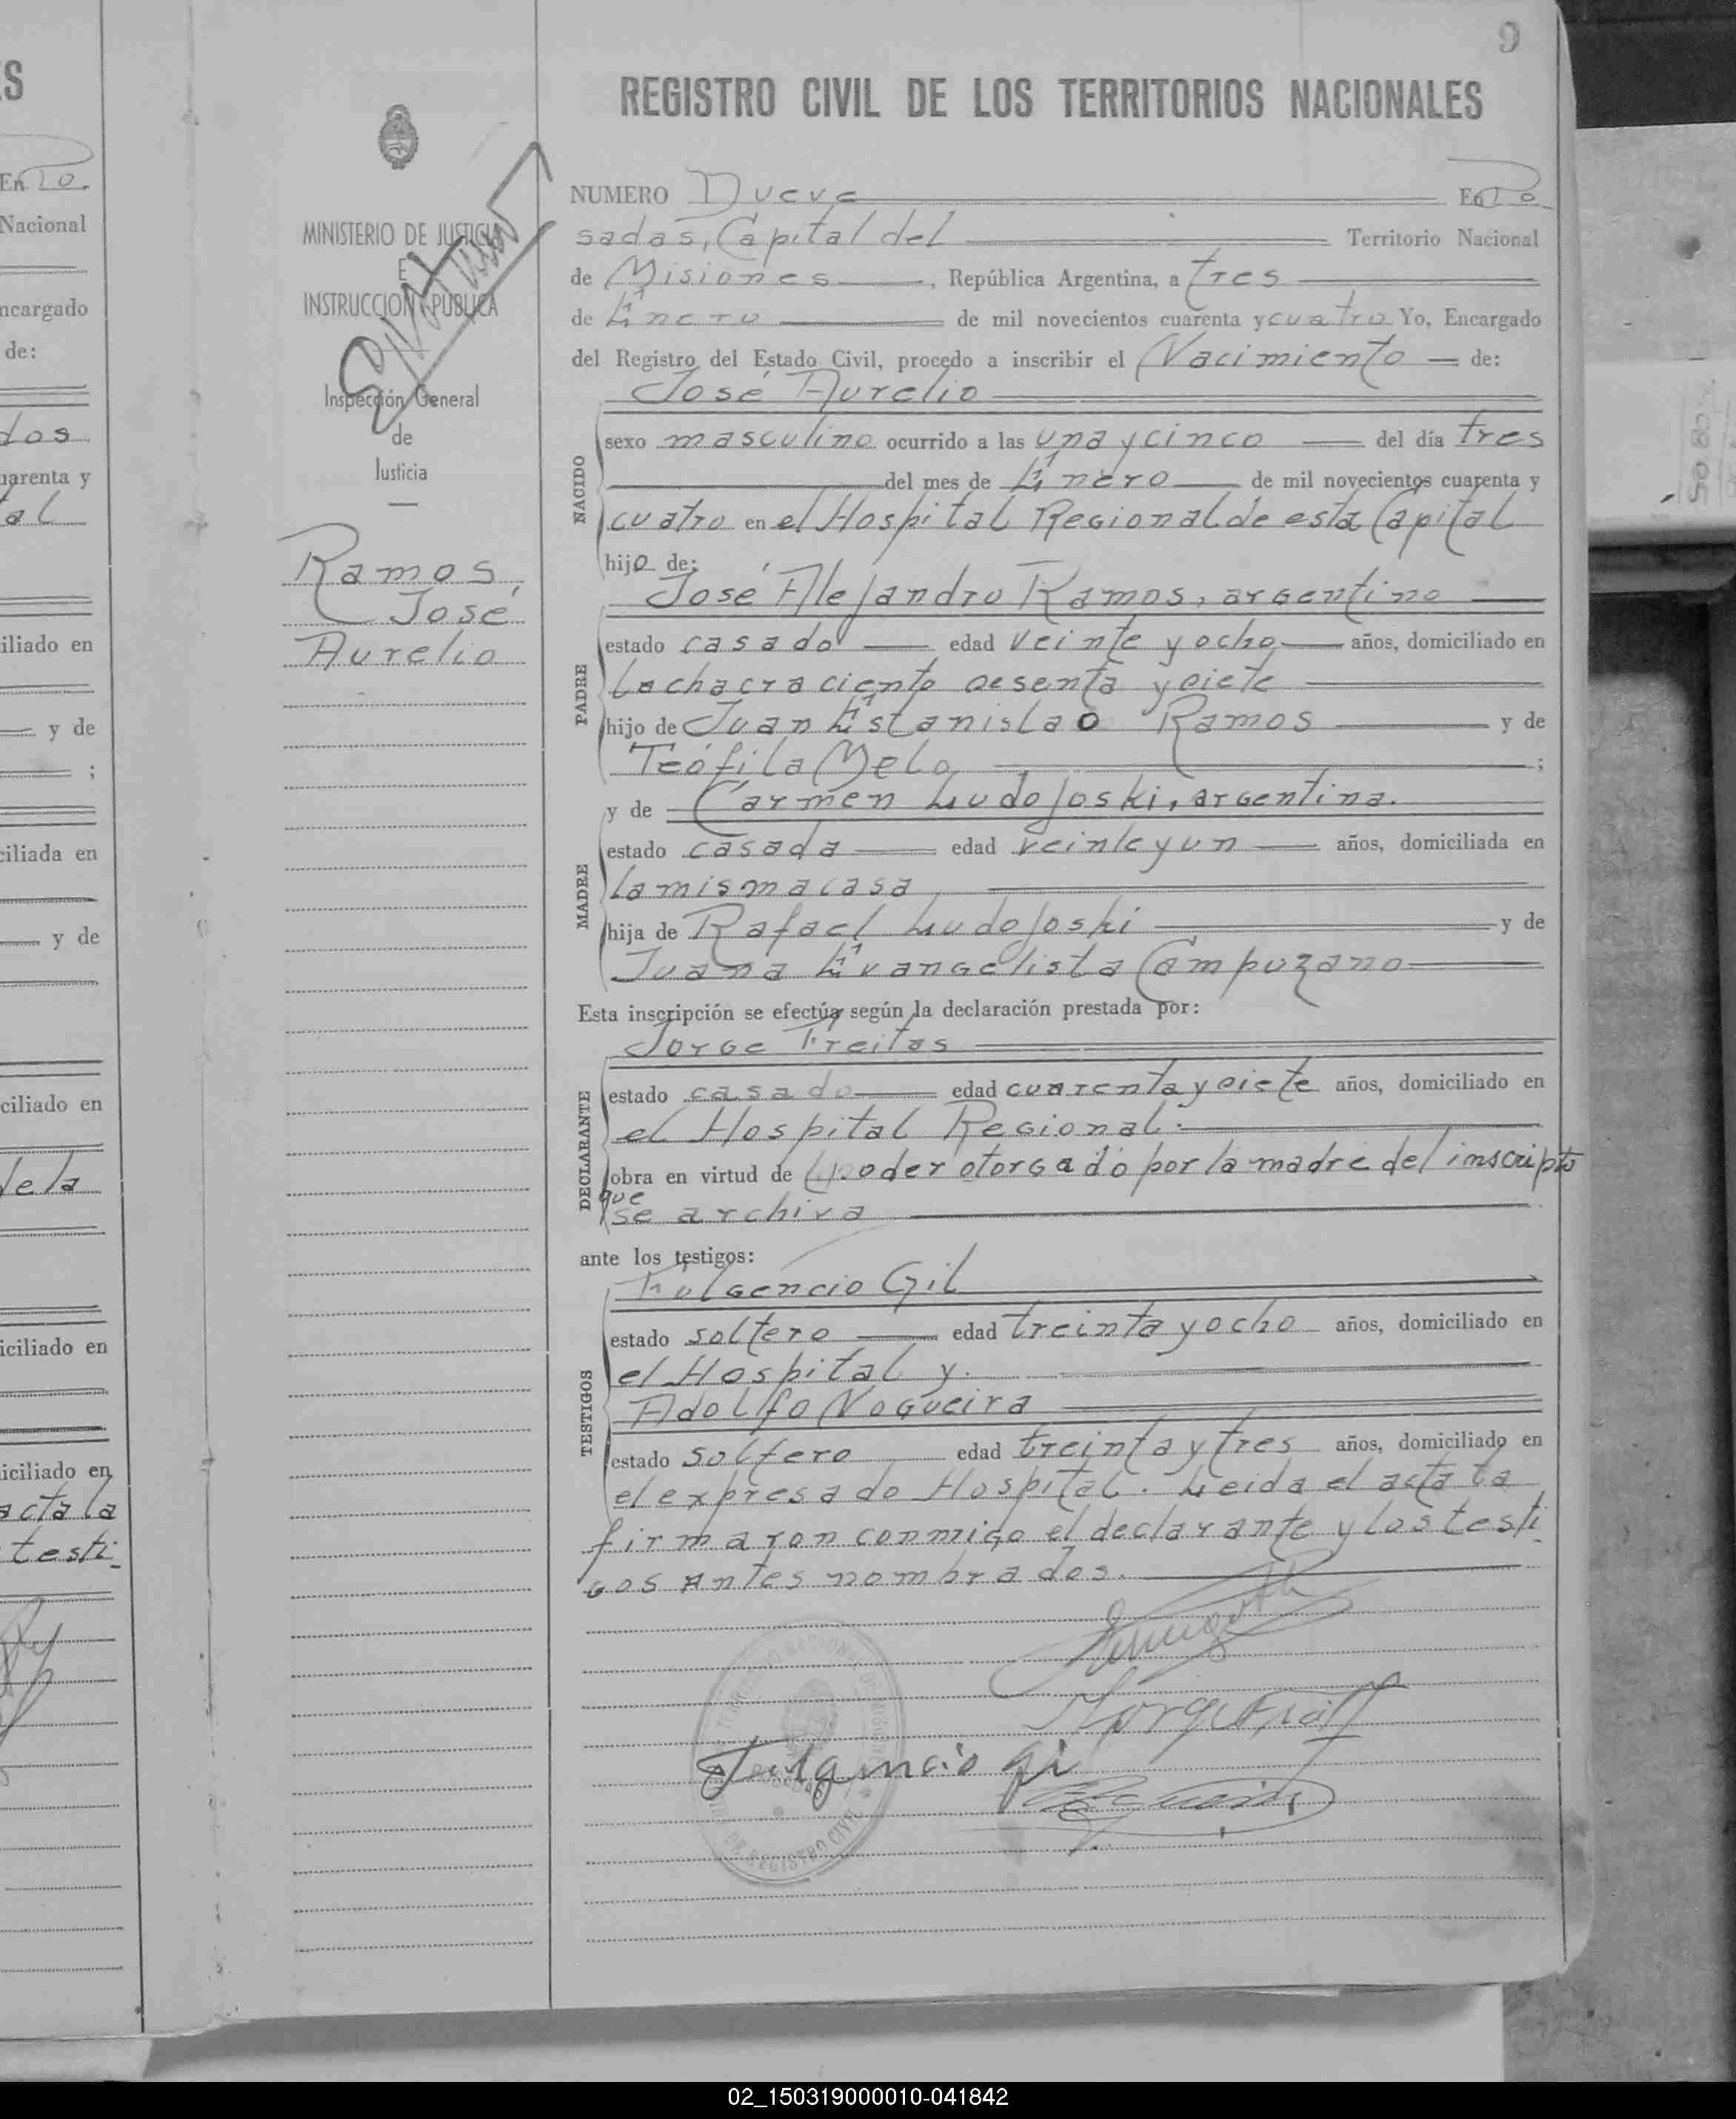 9
REGISTRO CIVIL DE LOS TERRITORIOS NACIONALES
MINISTERIO DE JUSTICIA
E
INSTRUCCION PUBLICA
Inspección General
de
Justicia
Ramos,
José
Aurelio
NUMERO Nueve En Po
sadas, Capital del Territorio Nacional
de Misiones, República Argentina, a tres
de Enero de mil novecientos cuarenta y cuatro Yo, Encargado
del Registro del Estado Civil, procedo a inscribir el Nacimiento de:
José Aurelio
NACIDO
sexo masculino ocurrido a las una y cinco del día tres
del mes de Enero de mil novecientos cuarenta y
cuatro en el Hospital Regional de esta Capital
hijo de:
José Alejandro Ramos, argentino
PADRE
estado casado edad veinte y ocho años, domiciliado en
la chacra ciento sesenta y siete
hijo de Juan Estanislao Ramos y de
Teófila Melo ;
y de Carmen Ludojoski, argentina.
MADRE
estado casada edad veinte y un años, domiciliada en
la misma casa
hija de Rafael Ludojoski y de
Juana Evangelista Campuzano
Esta inscripción se efectúa según la declaración prestada por:
Jorge Freitas
DECLARANTE
estado casado edad cuarenta y siete años, domiciliado en
el Hospital Regional.
obra en virtud de poder otorgado por la madre del inscripto
que
se archiva
ante los testigos:
Fulgencio Gil
TESTIGOS
estado soltero edad treinta y ocho años, domiciliado en
el Hospital y.
Adolfo Nogueira
estado soltero edad treinta y tres años, domiciliado en
el expresado Hospital. Leida el acta la
firmaron conmigo el declarante y los testi
gos antes nombrados.
Fulgencio gi
ES
En Po.
Nacional
ncargado
de:
dos
uarenta y
tal
iliado en
y de
;
ciliada en
y de
ciliado en
de la
iciliado en
iciliado en
acta la
testi-
02_150319000010-041842